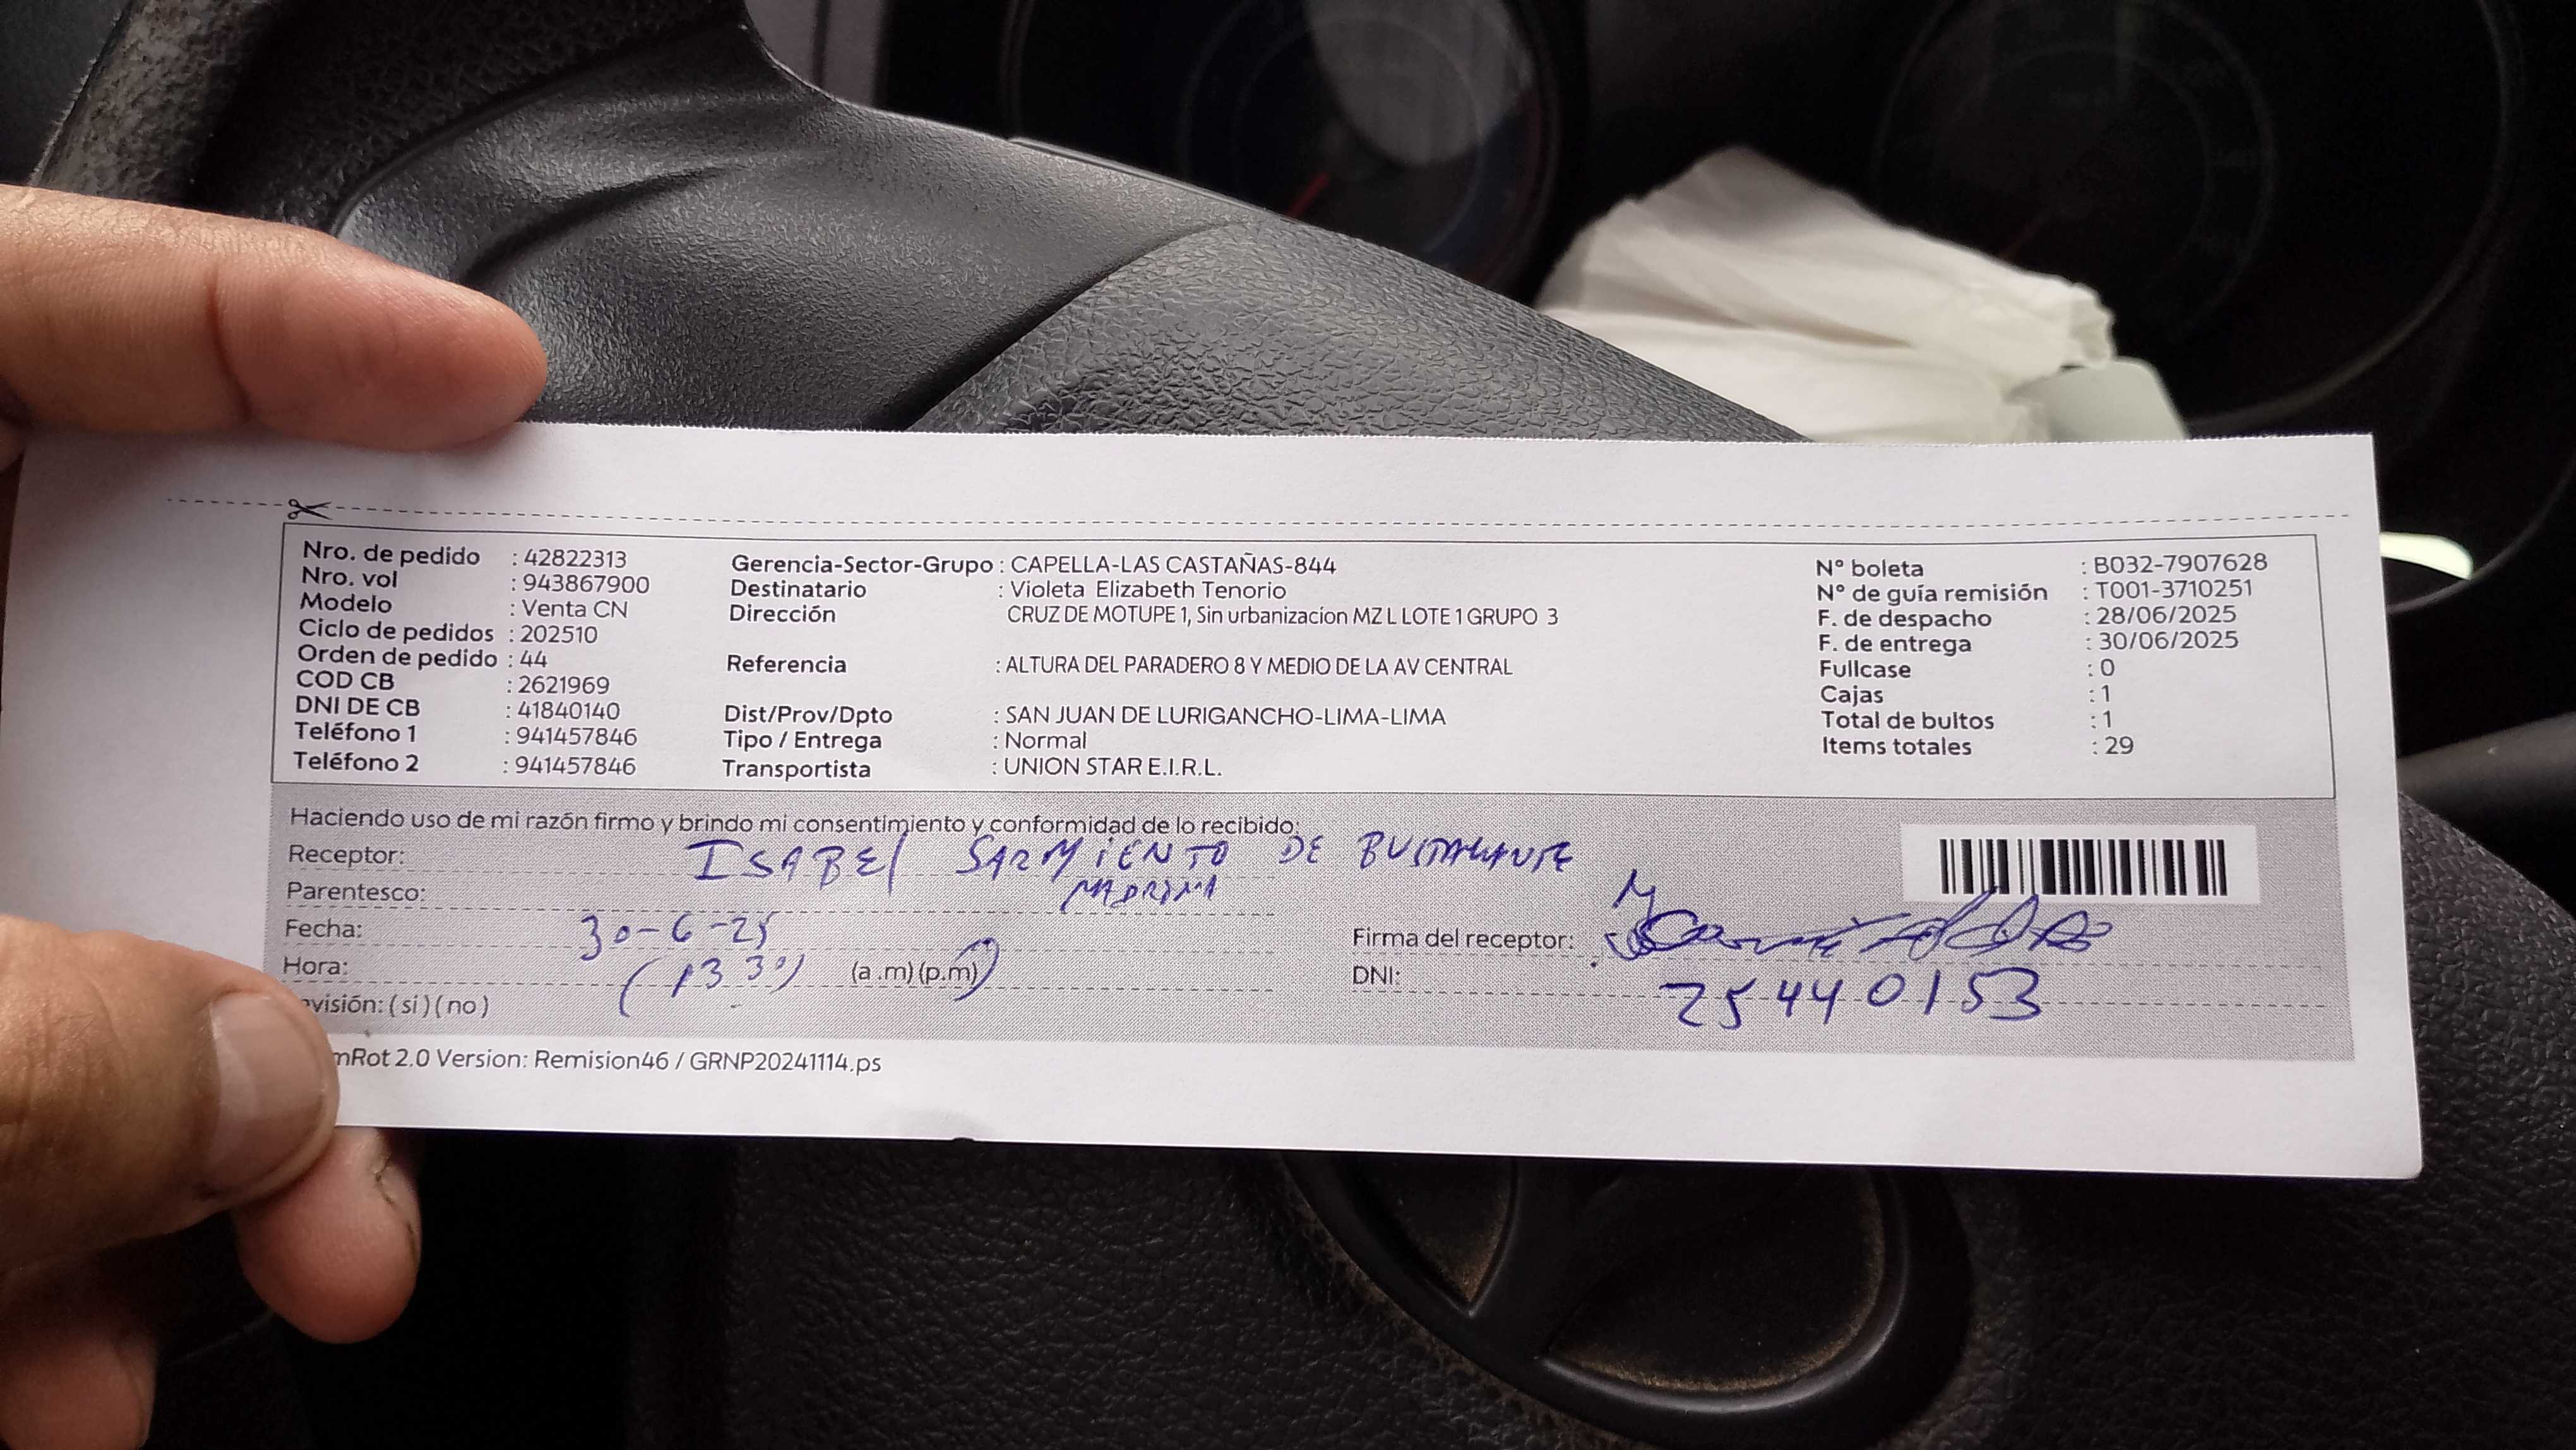 Nro. de pedido : 42822313
Nro. vol : 943867900
Modelo : Venta CN
Ciclo de pedidos : 202510
Orden de pedido : 44
COD CB : 2621969
DNI DE CB : 41840140
Teléfono 1 : 941457846
Teléfono 2 : 941457846
Gerencia-Sector-Grupo : CAPELLA-LAS CASTAÑAS-844
Destinatario : Violeta Elizabeth Tenorio
Dirección CRUZ DE MOTUPE 1, Sin urbanizacion MZ L LOTE 1 GRUPO 3
Referencia : ALTURA DEL PARADERO 8 Y MEDIO DE LA AV CENTRAL
Dist/Prov/Dpto : SAN JUAN DE LURIGANCHO-LIMA-LIMA
Tipo / Entrega : Normal
Transportista : UNION STAR E.I.R.L.
N° boleta : B032-7907628
N° de guía remisión : T001-3710251
F. de despacho : 28/06/2025
F. de entrega : 30/06/2025
Fullcase : 0
Cajas : 1
Total de bultos : 1
Items totales : 29
Haciendo uso de mi razón firmo y brindo mi consentimiento y conformidad de lo recibido:
Receptor: ISABEl SARMIENTO DE BUSTAMANTE
Parentesco: MADRINA
Fecha: 30-6-25
Hora: (1330) (a.m) (p.m)
visión: ( si ) ( no )
Firma del receptor:
DNI: 25440153
mRot 2.0 Version: Remision46 / GRNP20241114.ps